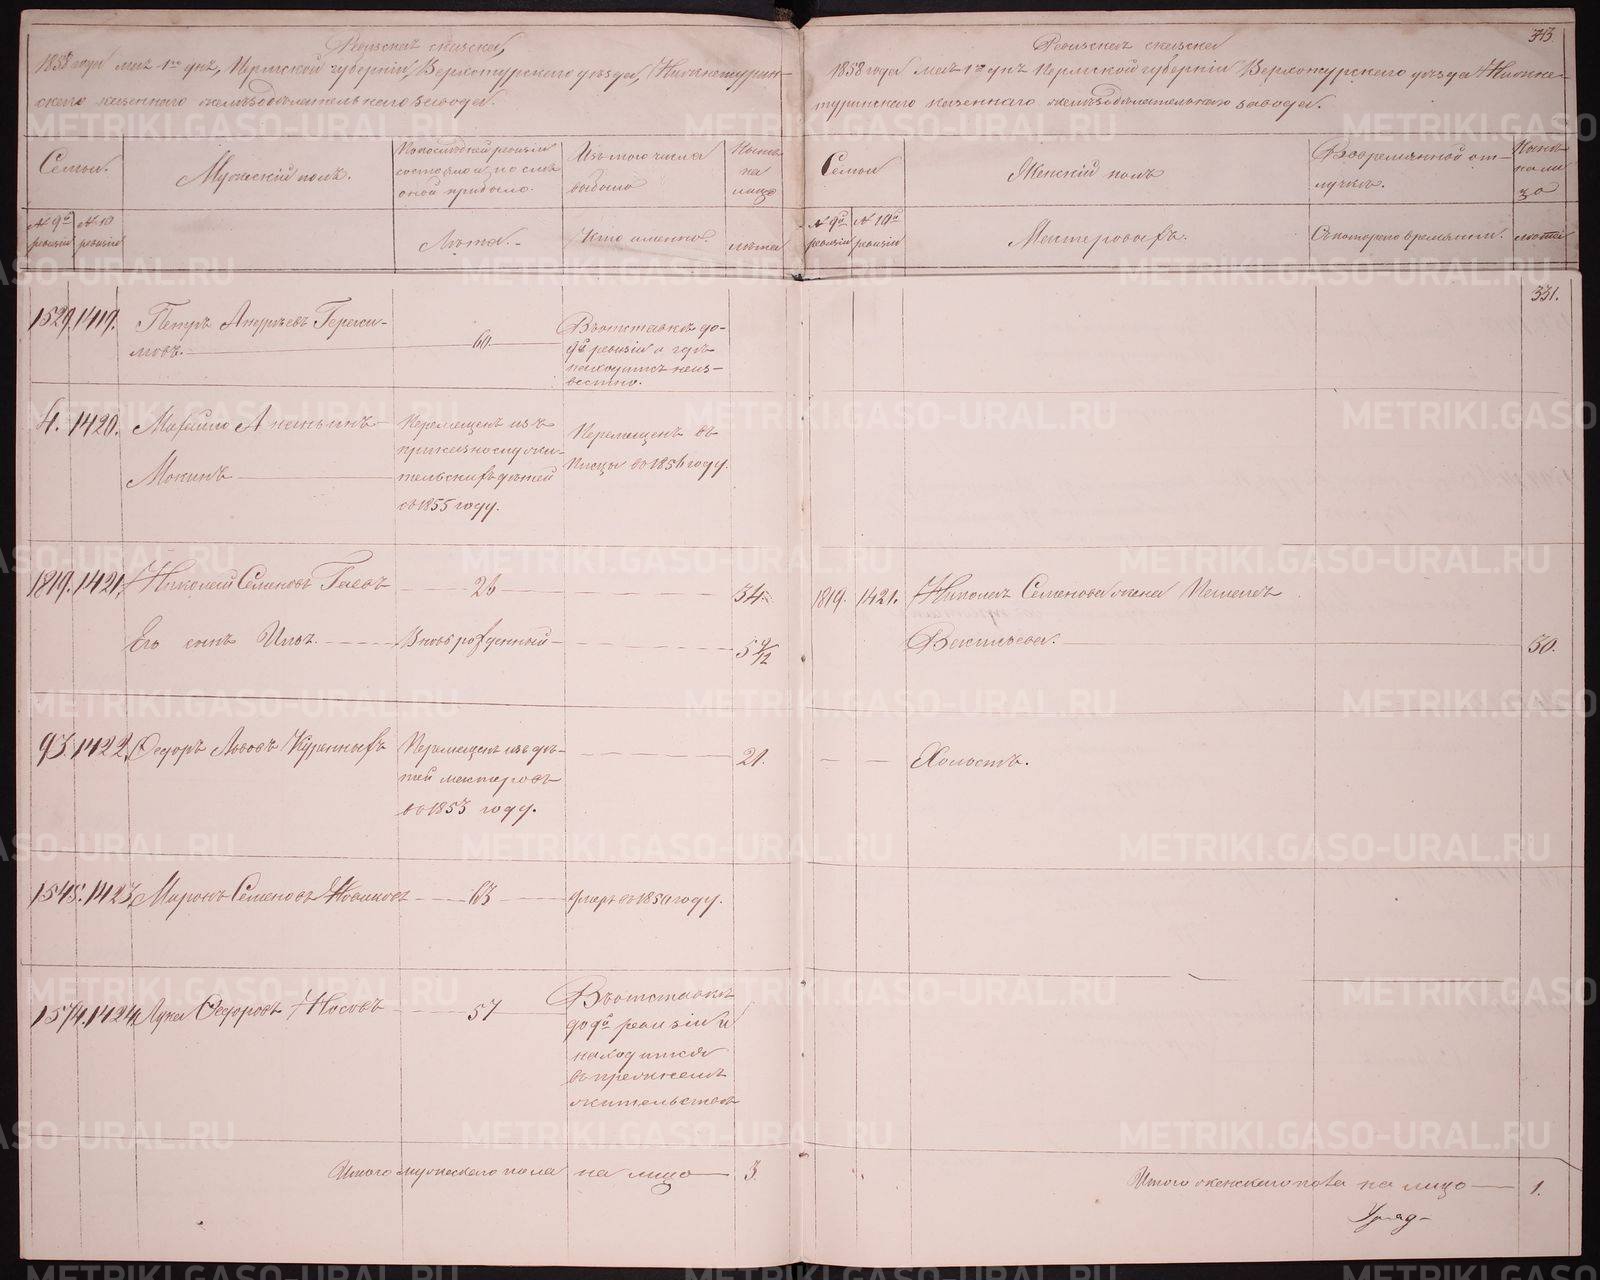 Ревизская сказка
1858 года мая 1го дня, Пермской губернiи Верхотурскаго уѣзда, Нижнетурин-
скаго казеннаго желѣзодѣлательнаго завода.
Семьи.
Мужескiй полъ.
По послѣдней ревизiи
состояло и послѣ
оной прибыло.
Изъ того числа
выбыло
Нынѣ
на
лицо
№ 9й
ревизiи
№ 10
ревизiи
Лѣта.
Кто именно.
лѣта
1529. 1419. Петръ Андреевъ Гераси-
мовъ. 60.
Въ отставкѣ до
9й ревизiи а гдѣ
находится неиз-
вестно.
4. 1420. Михайло Ананьинъ
Мокинъ
Перемещенъ изъ
приказнослужи-
тельскихъ дѣтей
въ 1855 году.
Перемещенъ въ
писцы въ 1856 году.
1819. 1421. Николай Семеновъ Гаевъ 26 34
Его сынъ Илья. Вновь рожденный 5 9/12
93. 1422. Федоръ Львовъ Куренныхъ
Перемещенъ изъ дѣ-
тей мастеровъ
въ 1853 году.
21.
1545. 1423. Миронъ Семеновъ Новиковъ 63 умеръ въ 1850 году.
1574. 1424. Лука Федоровъ Носовъ 57
Въ отставкѣ
до 9й ревизiи и
находится
въ прежнемъ
жительствѣ
Итого мужескаго пола на лицо 3.
343
Ревизская сказка
1858 года мая 1го дня Пермской губернiи Верхотурскаго уѣзда Нижне-
туринскаго казеннаго желѣзодѣлательнаго завода.
Семьи
Женскiй полъ
Во временной от-
лучкѣ.
Нынѣ
на ли
цо
№ 9й
ревизiи
№ 10й
ревизiи
Мастеровыхъ.
Съ котораго времянии.
лѣта
331.
1819. 1421. Николая Семенова жена Пелагея
Васильева. 30.
Холостъ.
Итого женскаго пола на лицо 1.
METRIKI.GASO-URAL.RU